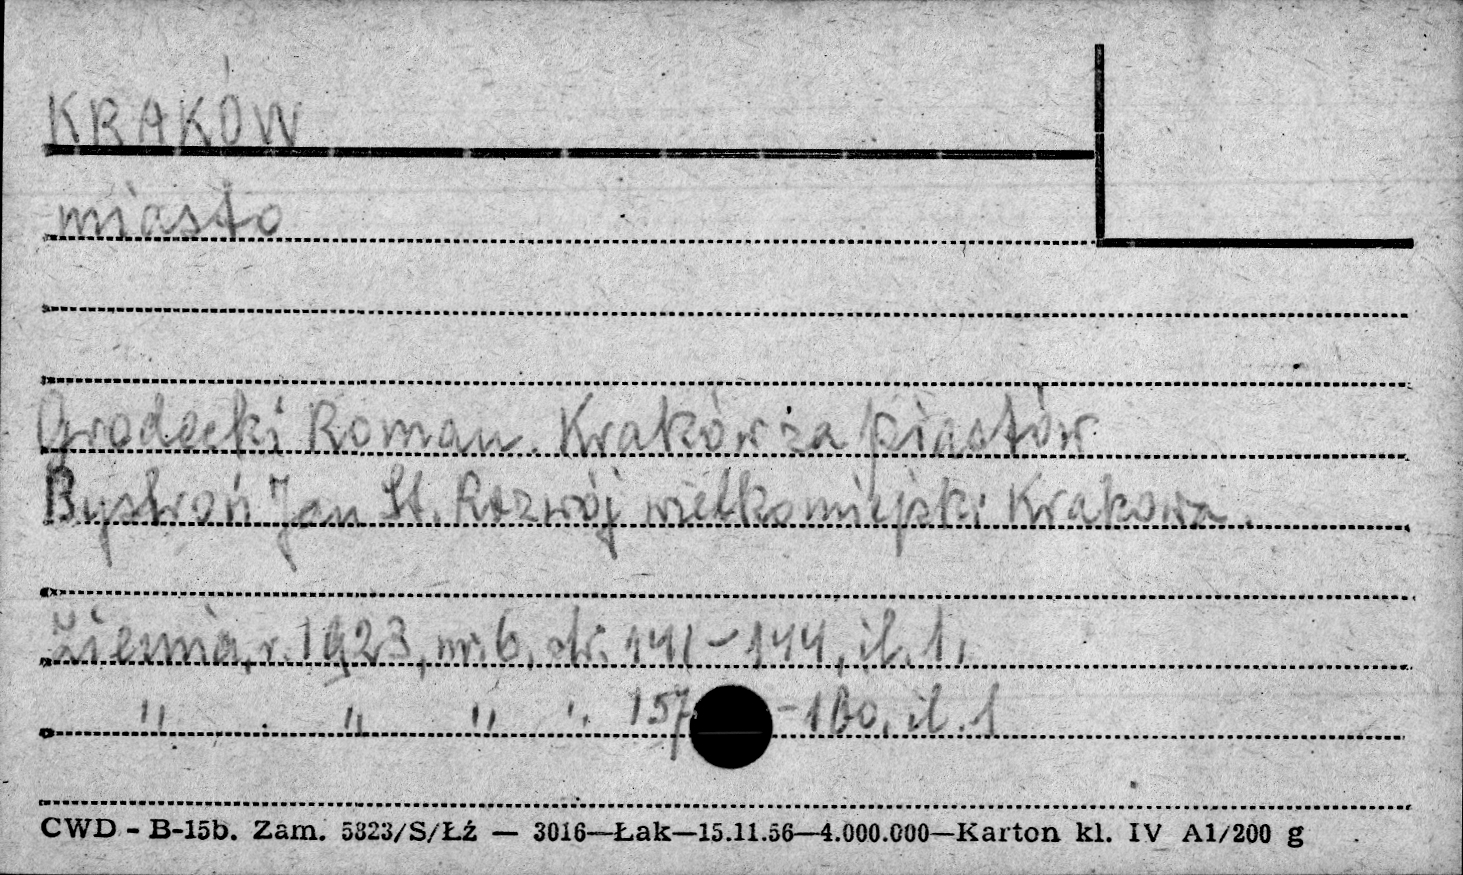 KRAKÓW
miasto
Grodecki Roman. Kraków za piastów
Bystroń Jan St. Rozwój wielkomiejski Krakowa.
Ziemia, r. 1923, nr. 6, str. 141-144, il. 1,
" " " " 157-160, il. 1
CWD - B-15b. Zam. 5323/S/Łź — 3016—Łak—15.11.56—4.000.000—Karton kl. IV A1/200 g